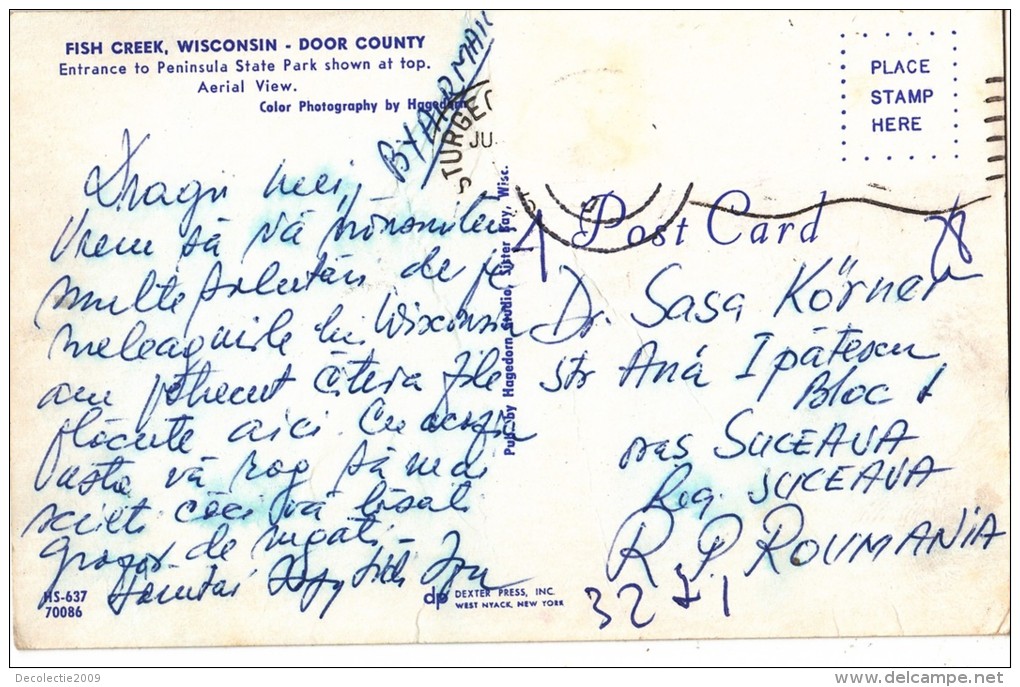 FISH CREEK, WISCONSIN - DOOR COUNTY
Entrance to Peninsula State Park shown at top.
Aerial View.
Color Photography by Hagedorn
BY AIR MAIL
STURGEO
JU
PLACE
STAMP
HERE
Post Card
Pub. by Hagedorn Studio, Sister Bay, Wisc.
Dragii mei,
Vrem să vă trimitem
multe salutări de pe
meleagurile lui Wisconsin
am petrecut câteva zile
plăcute aici Cu ocazia
asta vă rog să mai
scieti căci vă lăsați
grozav de rugați
Dr. Sasa Körner
str Ana Ipătescu
Bloc 1
oras SUCEAVA
Reg. SUCEAVA
R P ROUMANIA
3271
HS-637
70086
dp DEXTER PRESS, INC.
WEST NYACK, NEW YORK
Decolectie2009
www.delcampe.net